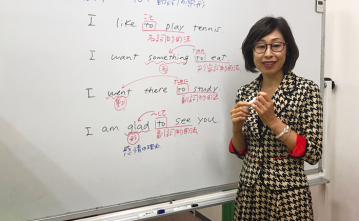 こと
I like to play tennis
名詞的用法
ための
I want something to eat
名
形容詞的用法
ために
I went there to study
動
副詞的用法
して
I am glad to see you
形
副詞的用法
感情の理由